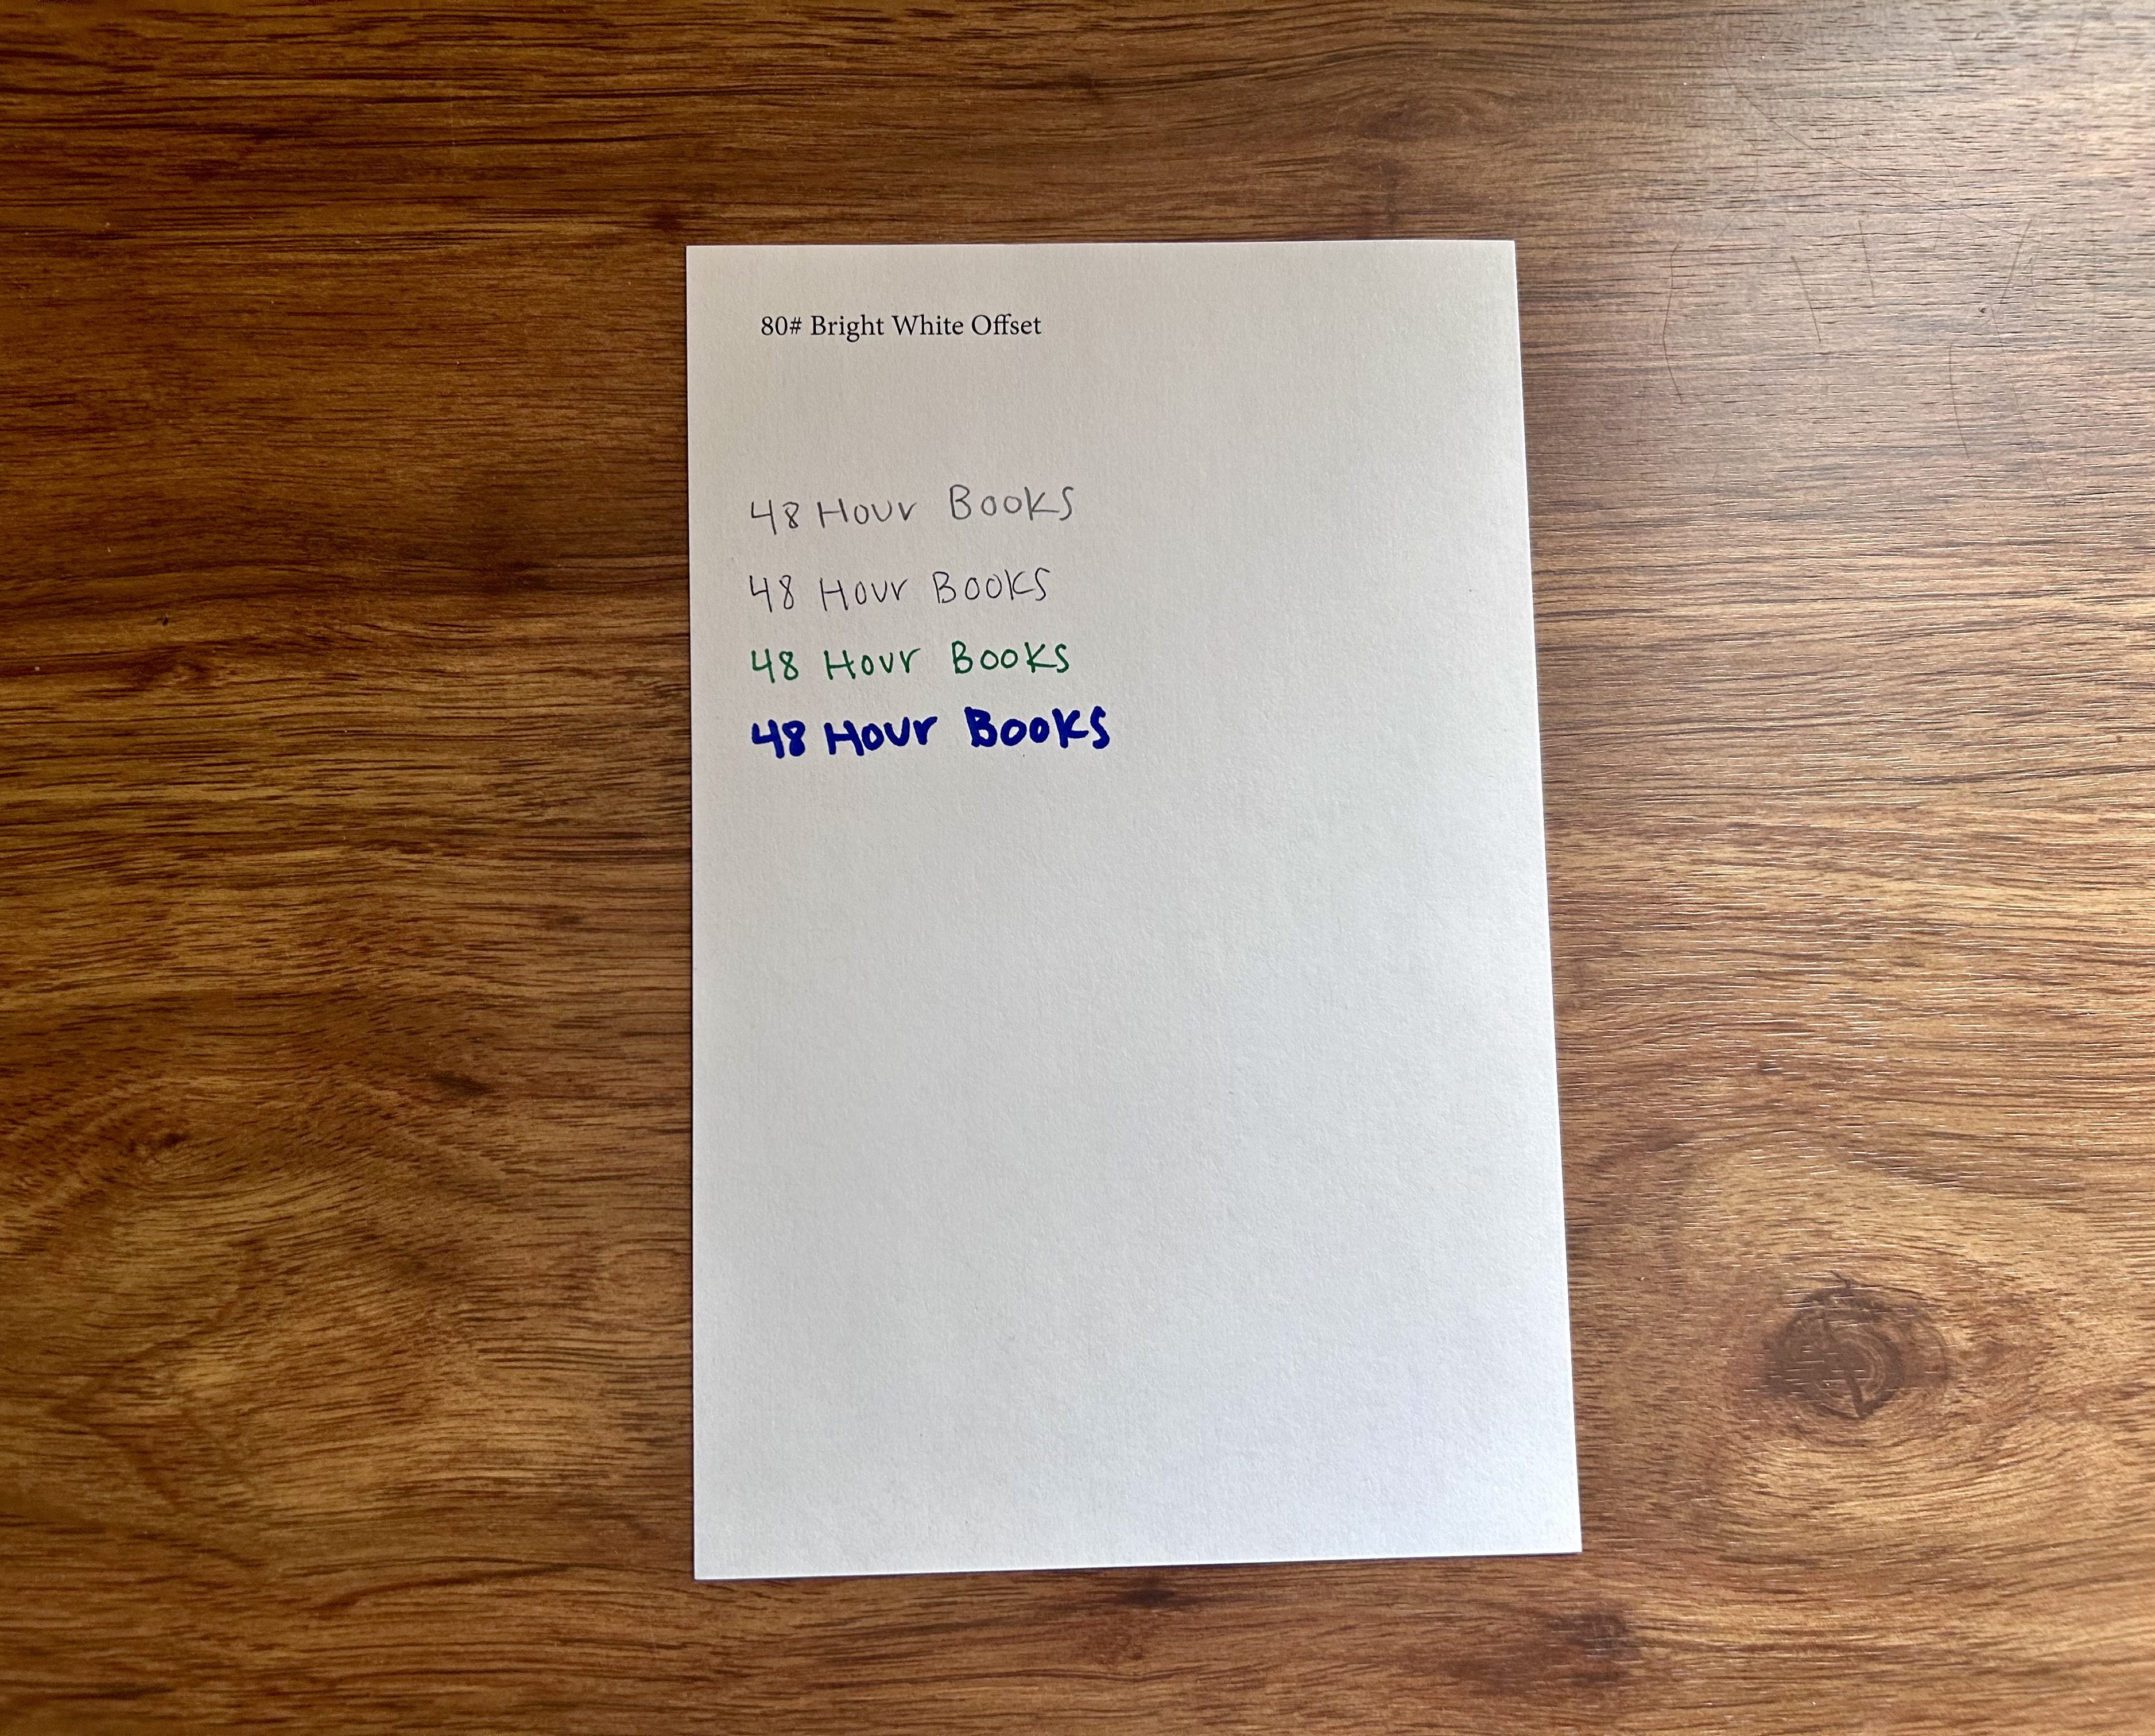 80# Bright White Offset
48 Hour Books
48 Hour Books
48 Hour Books
48 Hour Books